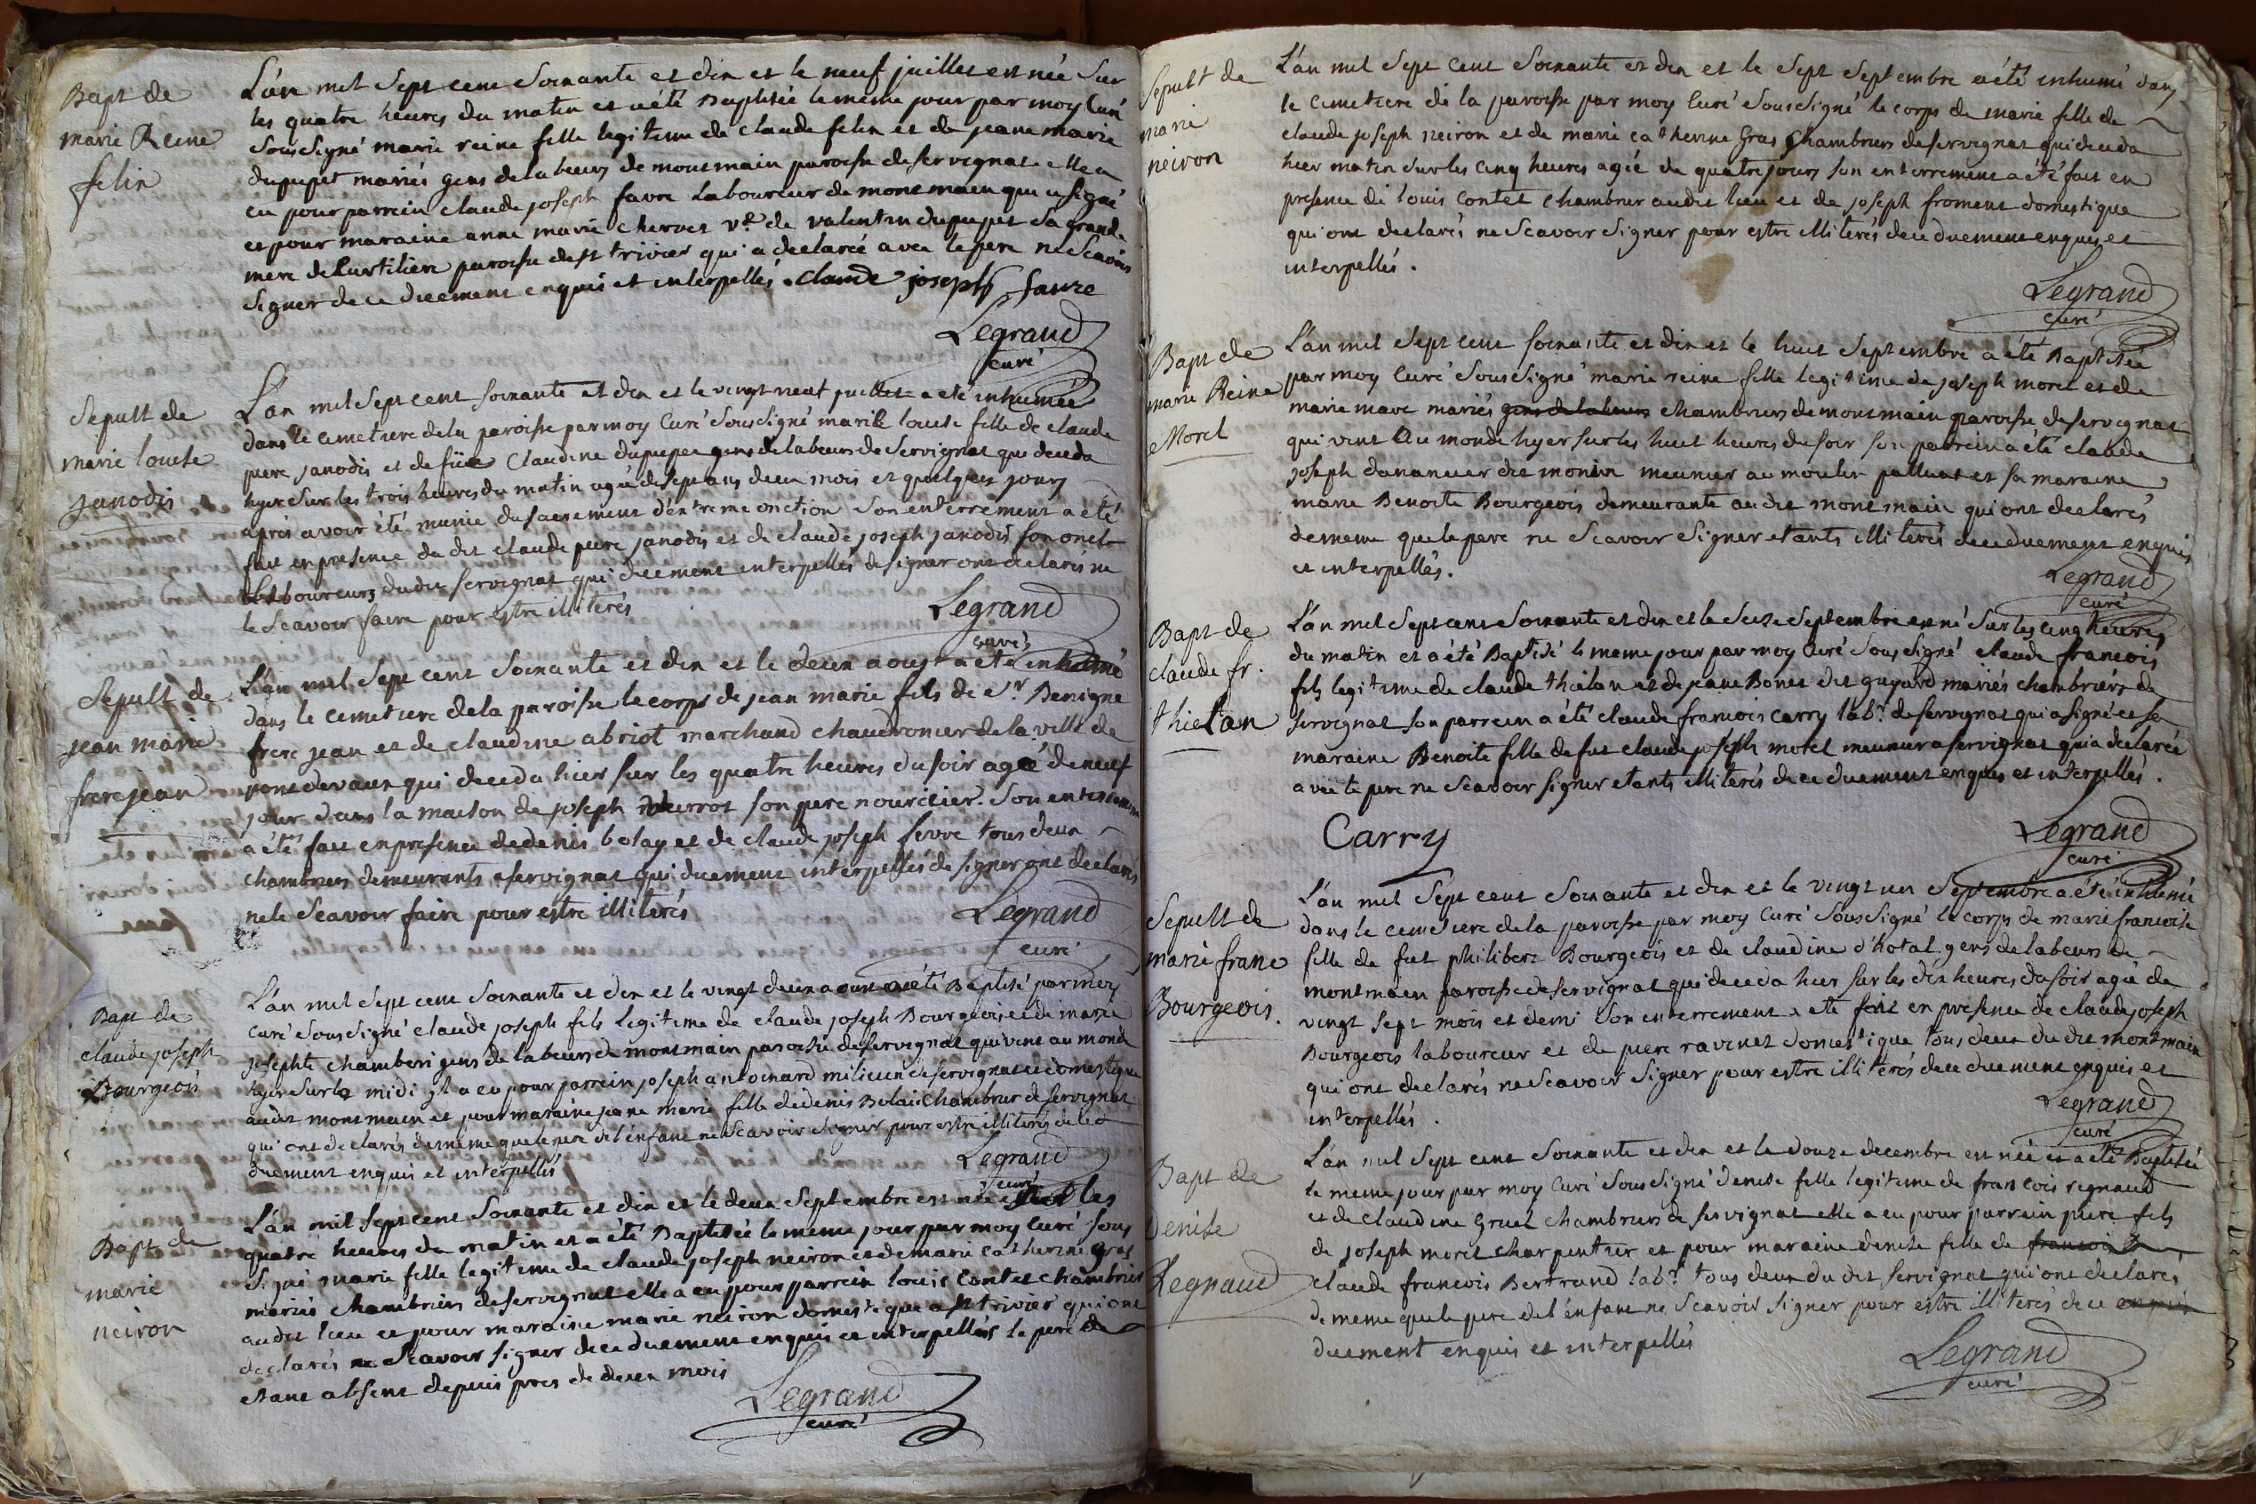 Bapt de
marie Reine
felin
L'an mil sept cent soixante et dix et le neuf juillet est née sur
les quatre heures du matin et a été Baptisée le meme jour par moy Curé
sous signé marie reine fille legitime de claude felin et de jeane marie
dupupet mariés gens de labeurs de montmain paroisse de servignat elle a
eu pour parrein claude joseph favre Laboureur de montmain qui a signé
et pour maraine anne marie chervet vᵉ de valentin dupupet sa grand
mere de Curtilien paroisse de st trivier qui a declarée avec le pere ne scavoir
signer de ce duement enquis et interpellés. claude joseph favre
Legrand
curé
Sepult de
marie louise
janodis
L'an mil sept cent soixante et dix et le vingt neuf juillet a eté inhumée
dans le cimetiere de la paroisse par moy Curé sous signé marie louise fille de claude
piere janodis et de füe Claudine dupupet gens de labeurs de Servignat qui deceda
hyer sur les trois heures du matin agée de sept ans deux mois et quelques jours
aprés avoir été munie du sacrement d'extreme onction son enterrement a eté
fait en presence du dit claude piere janodis et de claude joseph janodis son oncle
Laboureurs du dit servignat qui duement interpellés de signer ont declarés ne
le scavoir faire pour estre illiterés
Legrand
curé
Sepult de
jean marie
frere jean
L'an mil sept cent soixante et dix et le deux aoust a eté inhumé
dans le cimetiere de la paroisse le corps de jean marie fils de Sʳ Benigne
frere jean et de claudine abriot marchand chaudronier de la ville de
pontdevaux qui deceda hier sur les quatre heures du soir agé de neuf
jour dans la maison de joseph son pere nouricier. Son enterrement
a été fait en presence de denis bolay et de claude joseph favre tous deux
chambriers demeurants a servignat qui duement interpellés de signer ont declarés
ne le scavoir faire pour estre illiterés
Legrand
curé
Bapt de
claude joseph
Bourgeois
L'an mil sept cent soixante et dix et le vingt deux aoust a été Baptisé par moy
Curé sous signé claude joseph fils legitime de claude joseph Bourgeois et de marie
josephte chamberi gens de labeurs de montmain paroisse de servignat qui vint au monde
hyer sur le midi il a eu pour parrein joseph antoinard milicien de servignat et domestique
audit montmain et pour maraine jeane marie fille de denis Bolai Chambrier de servignat
qui ont declarés de meme que le pere de l'enfant ne scavoir signer pour estre illiterés de ce
duement enquis et interpellés
Legrand
curé
Bapt de
marie
neiron
L'an mil sept cent soixante et dix et le deux septembre est née sur les
quatre heures du matin et a été Baptisée le meme jour par moy Curé sous
signé marie fille legitime de claude joseph neiron et de marie catherine gras
mariés chambriers de servignat elle a eu pour parrein louis contet chambrier
audit lieu et pour maraine marie neiron domestique a st trivier qui ont
declarés ne scavoir signer de ce duement enquis et interpellés le pere
etant absent depuis pres de deux mois
Legrand
curé
Sepult de
marie
neiron
L'an mil sept cent soixante et dix et le sept septembre a été inhumé dans
le cimetiere de la paroisse par moy Curé sous signé le corps de marie fille de
claude joseph neiron et de marie catherine Gras chambriers de servignat qui deceda
hier matin sur les cinq heures agée de quatre jours son enterrement a été fait en
presence de louis contet chambrier audit lieu et de joseph froment domestique
qui ont declarés ne scavoir signer pour estre illiterés de ce duement enquis et
interpellés.
Legrand
curé
Bapt de
marie Reine
Morel
L'an mil sept cent soixante et dix et le huit septembre a eté Baptisée
par moy Curé sous signé marie reine fille legitime de joseph morel et de
marie mare mariés gens de labeurs chambriers de montmain paroisse de servignat
qui vint au monde hyer sur les huit heures du soir son parrein a eté claude
joseph danancier dit monin meunier au moulin palluat et sa maraine
marie Benoite Bourgeois demeurante audit montmain qui ont declarés
de meme que le pere ne scavoir signer etants illiterés de ce duement enquis
et interpellés.
Legrand
curé
Bapt de
claude fr.
thielan
L'an mil sept cent soixante et dix et le seize septembre est né sur les cinq heures
du matin et a été Baptisé le meme jour par moy Curé sous signé claude francois
fils legitime de claude thielan et de jeane Bonet dit guyard mariés chambriers de
servignat son parrein a été claude francois carry labʳ. de servignat qui a signé et sa
maraine Benoite fille de fut claude joseph morel meunier a servignat qui a declarée
avec le pere ne scavoir signer etants illiterés de ce duement enquis et interpellés.
Carry
Legrand
curé
Sepult de
marie franc
Bourgeois.
L'an mil sept cent soixante et dix et le vingt un septembre a été inhumé
dans le cimetiere de la paroisse par moy Curé sous signé le corps de marie francoise
fille de fut philibert Bourgeois et de claudine d'hotal gens de labeurs de
montmain paroisse de servignat qui deceda hier sur les dix heures du soir agée de
vingt sept mois et demi son enterrement a eté fait en presence de claude joseph
Bourgeois laboureur et de piere ravinet domestique tous deux du dit montmain
qui ont declarés ne scavoir signer pour estre illiterés de ce duement enquis et
interpellés.
Legrand
curé
Bapt de
denise
Regnaud
L'an mil sept cent soixante et dix et le douze decembre est née et a eté Baptisée
le meme jour par moy Curé sous signé denise fille legitime de francois regnaud
et de claudine Gruel chambriers de servignat elle a eu pour parrein piere fils
de joseph morel charpentier et pour maraine denise fille de francois
claude francois Bertrand labʳ. tous deux du dit servignat qui ont declarés
de meme que le pere de l'enfant ne scavoir signer pour estre illiterés de ce enquis
duement enquis et interpellés
Legrand
curé